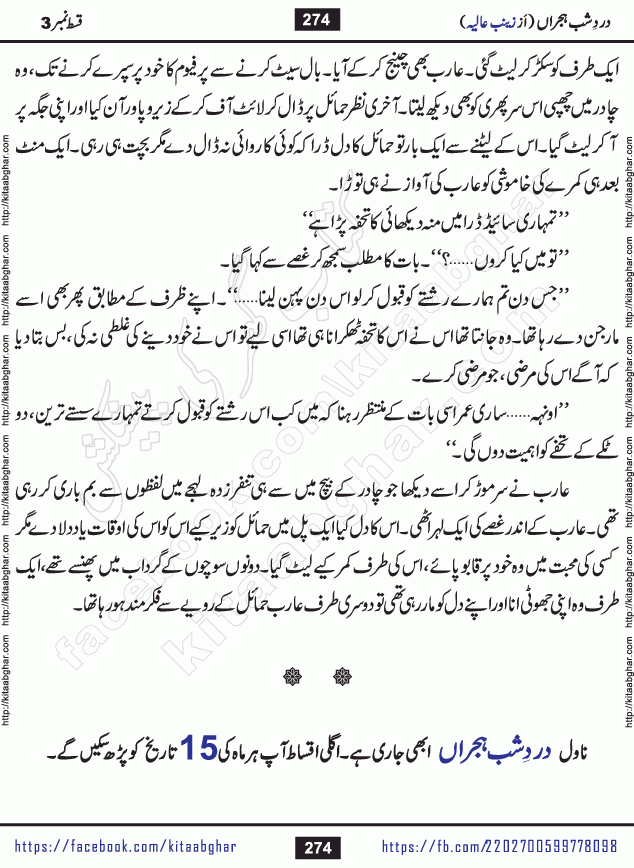 دردِ شب ہجراں (از زینب عالیہ) 274 قسط نمبر 3
ایک طرف کو سکڑ کر لیٹ گئی۔ عارب بھی چینج کر کے آیا۔ بال سیٹ کرنے سے پرفیوم کا خود پر سپرے کرنے تک، وہ
چادر میں چھپی اس سر پھری کو بھی دیکھ لیتا۔ آخری نظر حمائل پر ڈال کر لائٹ آف کر کے زیرو پاور آن کیا اور اپنی جگہ پر
آ کر لیٹ گیا۔ اس کے لیٹنے سے ایک بار تو حمائل کا دل ڈرا کہ کوئی کاروائی نہ ڈال دے مگر بچت ہی رہی۔ ایک منٹ
بعد ہی کمرے کی خاموشی کو عارب کی آواز نے ہی توڑا۔
’’تمہاری سائیڈ ڈرا میں منہ دیکھائی کا تحفہ پڑا ہے‘‘
’’تو میں کیا کروں......؟‘‘۔ بات کا مطلب سمجھ کر غصے سے کہا گیا۔
’’جس دن تم ہمارے رشتے کو قبول کر لو اس دن پہن لینا.....‘‘۔ اپنے ظرف کے مطابق پھر بھی اسے
مارجن دے رہا تھا۔ وہ جانتا تھا اس نے اس کا تحفہ ٹھکرانا ہی تھا اسی لیے تو اس نے خود دینے کی غلطی نہ کی، بس بتا دیا
کہ آگے اس کی مرضی، جو مرضی کرے۔
’’اونہہ......ساری عمر اسی بات کے منتظر رہنا کہ میں کب اس رشتے کو قبول کرتے تمہارے سستے ترین، دو
ٹکے کے تحفے کو اہمیت دوں گی۔‘‘
عارب نے سر موڑ کر اسے دیکھا جو چادر کے بیچ میں سے ہی تنفر زدہ لہجے میں لفظوں سے بم باری کر رہی
تھی۔ عارب کے اندر غصے کی ایک لہر اٹھی۔ اس کا دل کیا ایک پل میں حمائل کو زیر کیے اس کو اس کی اوقات یاد دلا دے مگر
کسی کی محبت میں وہ خود پر قابو پائے، اس کی طرف کمر کیے لیٹ گیا۔ دونوں سوچوں کے گرداب میں پھنسے تھے، ایک
طرف وہ اپنی جھوٹی انا اور اپنے دل کو مار رہی تھی تو دوسری طرف عارب حمائل کے رویے سے فکر مند ہو رہا تھا۔
ناول دردِ شب ہجراں ابھی جاری ہے۔ اگلی اقساط آپ ہر ماہ کی 15 تاریخ کو پڑھ سکیں گے۔
https://facebook.com/kitaabghar 274 https://fb.com/2202700599778098
http://kitaabghar.com http://kitaabghar.com http://kitaabghar.com http://kitaabghar.com http://kitaabghar.com http://kitaabghar.com
http://kitaabghar.com http://kitaabghar.com http://kitaabghar.com http://kitaabghar.com http://kitaabghar.com http://kitaabghar.com
کتاب گھر کی پیشکش
kitaabghar.com
facebook.com/kitaabghar